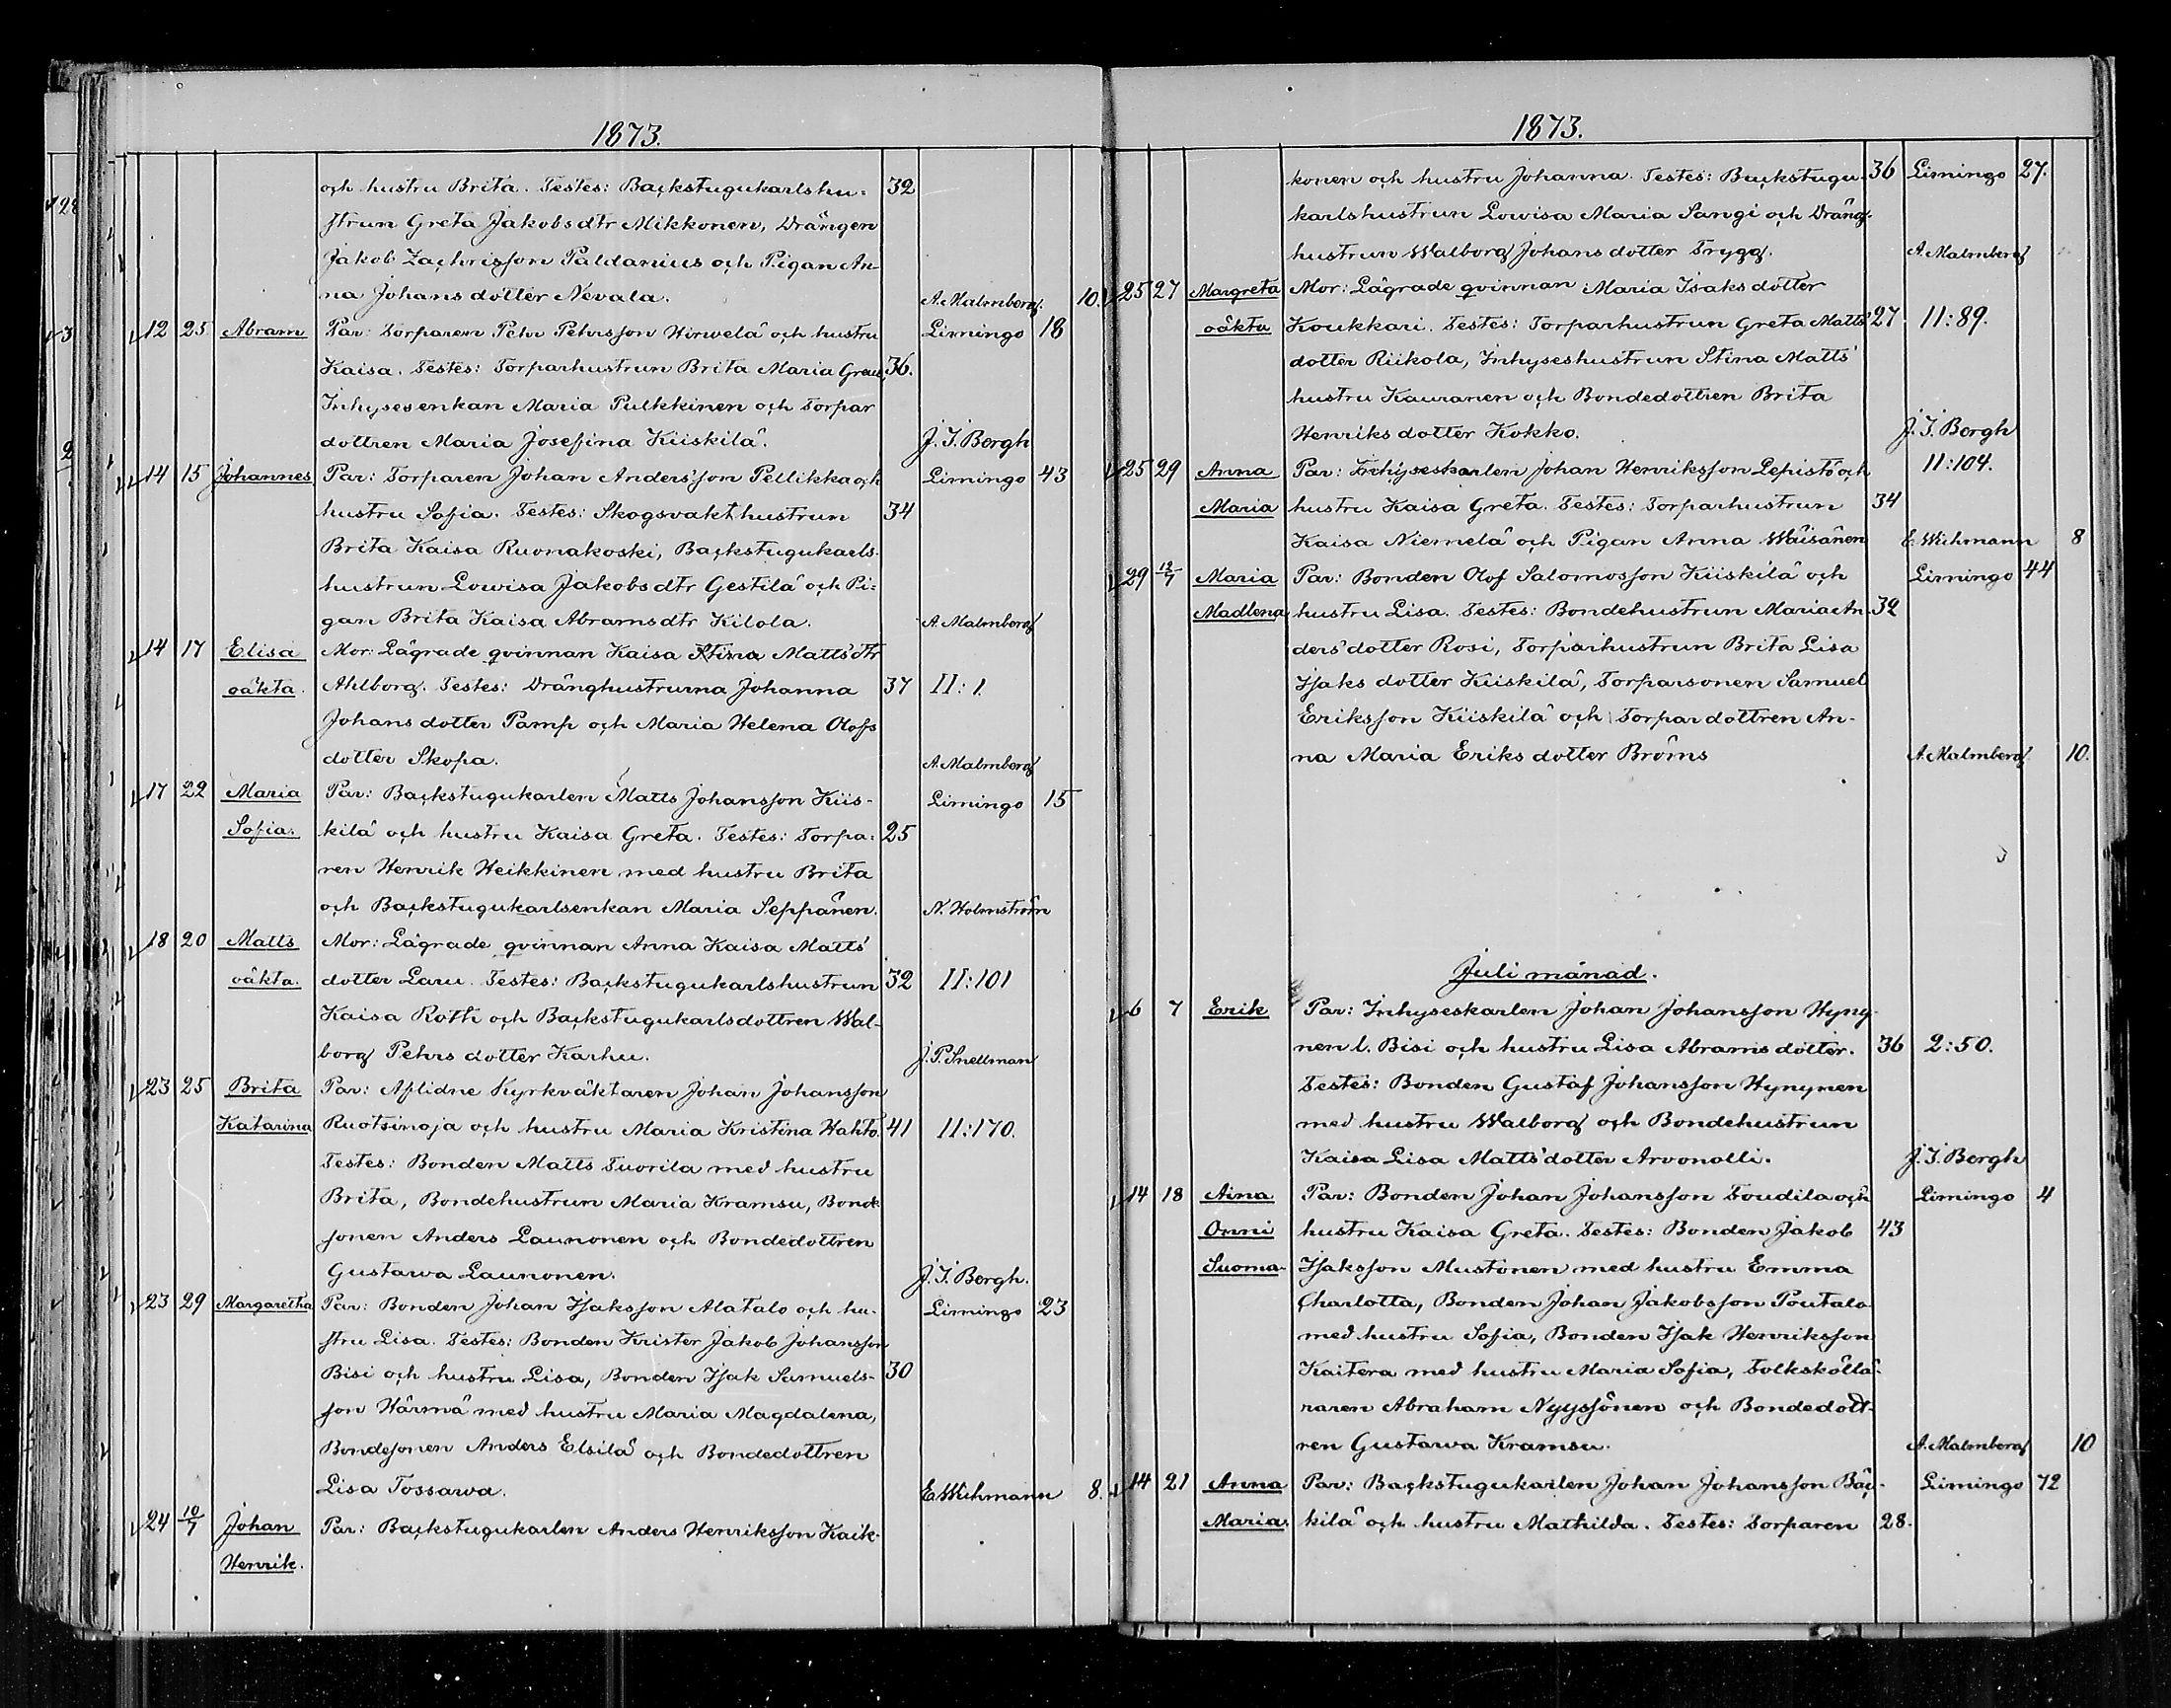 1873.
och hustru Brita. Testes: Backstugukarlshu- 32
strun Greta Jakobsdtr Mikkonen, Drängen
Jakob Zachrisson Paldanius och Pigan An-
na Johansdotter Nevala. A. Malmberg. 10.
12 25 Abram Par: Torparen Pehr Pehrsson Hirwelä och hustru Limingo 18
Kaisa. Testes: Torparhustrun Brita Maria 36.
Inhysesenkan Maria Pulkkinen och Torpar
dottren Maria Josefina Kiiskilä. J. I. Bergh
14 15 Johannes Par: Torparen Johan Andersson Pellikka och Limingo 43
hustru Sofia. Testes: Skogsvakthustrun 34
Brita Kaisa Ruonakoski, Backstugukarls-
hustrun Lowisa Jakobsdtr Gestilä och Pi-
gan Brita Kaisa Abramsdtr Kilola. A. Malmberg
14 17 Elisa Mor: Lägrade qvinnan Kaisa Stina Mattsdtr
oäkta. Ahlborg. Testes: Dränghustrurna Johanna 37 II: 1.
Johansdotter Pamp och Maria Helena Olofs
dotter Skopa. A. Malmberg
17 22 Maria Par: Backstugukarlen Matts Johansson Kiis- Limingo 15
Sofia. kilä och hustru Kaisa Greta. Testes: Torpa- 25
ren Henrik Heikkinen med hustru Brita
och Backstugukarlsenkan Maria Seppänen. N. Holmström
18 20 Matts Mor: Lägrade qvinnan Anna Kaisa Matts
oäkta. dotter Laru. Testes: Backstugukarlshustrun 32 II:101
Kaisa Roth och Backstugukarlsdottren Wal-
borg Pehrsdotter Karhu. J. P. Snellman
23 25 Brita Par: Aflidne Kyrkväktaren Johan Johansson
Katarina Ruotsinoja och hustru Maria Kristina Hahto. 41 II:170.
Testes: Bonden Matts Tuorila med hustru
Brita, Bondehustrun Maria Kramsu, Bonde
sonen Anders Launonen och Bondedottren
Gustawa Launonen. J. I. Bergh.
23 29 Margaretha Par: Bonden Johan Isaksson Alatalo och hu- Limingo 23
stru Lisa. Testes: Bonden Krister Jakob Johansson
Bisi och hustru Lisa, Bonden Isak Samuels- 30
son Härmä med hustru Maria Magdalena,
Bondesonen Anders Elsilä och Bondedottren
Lisa Tossawa. E. Wichmann 8.
24 10/7 Johan Par: Backstugukarlen Anders Henriksson Kaik-
Henrik.
1873.
konen och hustru Johanna. Testes: Backstugu- 36 Limingo 27.
karlshustrun Lowisa Maria Sangi och Dräng-
hustrun Walborg Johansdotter Trygg. A. Malmberg
25 27 Margreta Mor: Lägrade qvinnan Maria Isaksdotter
oäkta Koukkari. Testes: Torparhustrun Greta Matts 27 II:89.
dotter Riikola, Inhyseshustrun Stina Matts
hustru Kauranen och Bondedottren Brita
Henriksdotter Kokko. J. I. Bergh
25 29 Anna Par: Inhyseskarlen Johan Henriksson Lepistö och II:104.
Maria hustru Kaisa Greta. Testes: Torparhustrun 34
Kaisa Niemelä och Pigan Anna Wäisänen E. Wichmann 8
29 12/7 Maria Par: Bonden Olof Salomosson Kiiskilä och Limingo 44
Madlena hustru Lisa. Testes: Bondehustrun Maria An- 32
dersdotter Rosi, Torparhustrun Brita Lisa
Isaksdotter Kiiskilä, Torparsonen Samuel
Eriksson Kiiskilä och Torpardottren An-
na Maria Eriksdotter Broms A. Malmberg 10.
Juli månad.
6 7 Erik Par: Inhyseskarlen Johan Johansson Hyny-
nen l. Bisi och hustru Lisa Abramsdotter. 36 2:50.
Testes: Bonden Gustaf Johansson Hynynen
med hustru Walborg och Bondehustrun
Kaisa Lisa Mattsdotter Arvonolli. J. I. Bergh
14 18 Aina Par: Bonden Johan Johansson Toudila och Limingo 4
Onni hustru Kaisa Greta. Testes: Bonden Jakob 43
Suoma- Isaksson Mustonen med hustru Emma
Charlotta, Bonden Johan Jakobsson Poutalo
med hustru Sofia, Bonden Isak Henriksson
Kaitera med hustru Maria Sofia, Folkskollä-
raren Abraham Nyyssönen och Bondedott-
ren Gustawa Kramsu. A. Malmberg 10
14 21 Anna Par: Backstugukarlen Johan Johansson Bäc- Limingo 72
Maria. kilä och hustru Mathilda. Testes: Torparen 28.